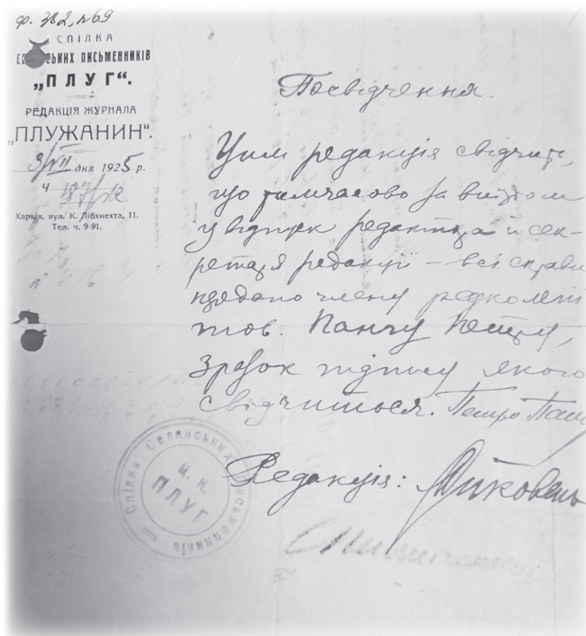 ф. 382, №69
СПІЛКА
СЕЛЯНСЬКИХ ПИСЬМЕННИКІВ
„ПЛУГ“.
РЕДАКЦІЯ ЖУРНАЛА
„ПЛУЖАНИН“.
3/VII дня 1925 р.
Ч
Харків, вул. К. Лібкнехта, 11.
Тел. ч. 9-91.
Посвідчення.
Цим редакція свідчить,
що тимчасово за виїздом
у відпуск редактора й сек-
ретаря редакції – всі справи
передано члену редколегії
тов. Панчу Петру,
зразок підпису якого
свідчиться. Петро Панч
Редакція:
Спілка Селянських Письменників
Ц. К.
ПЛУГ